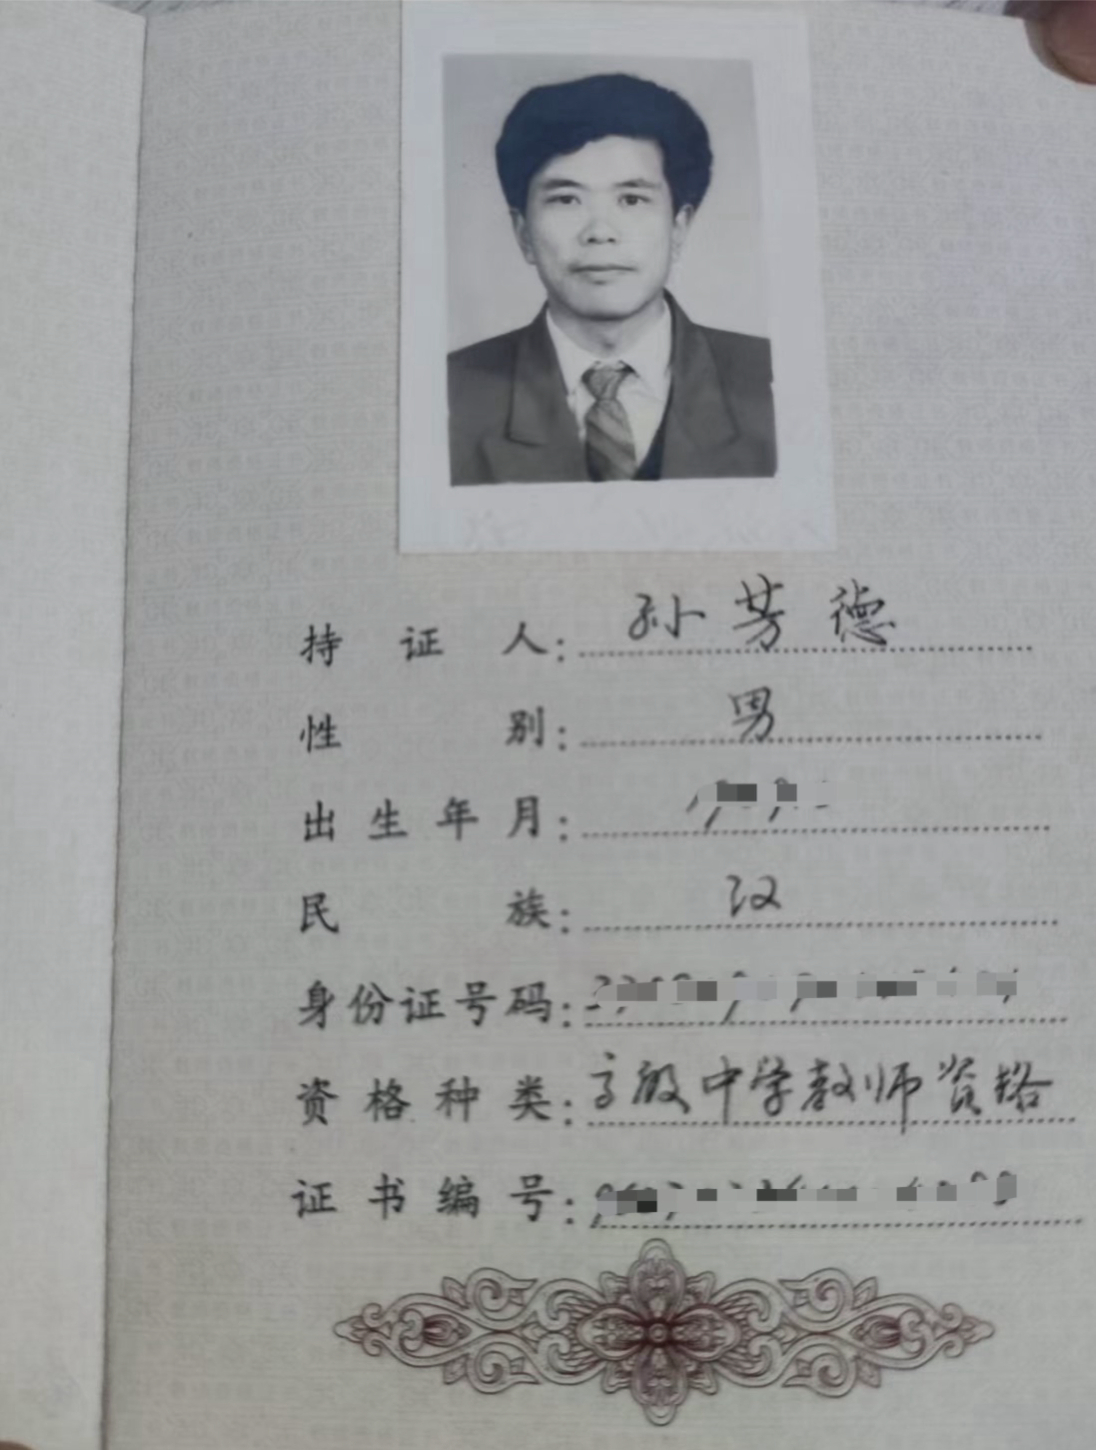 持证人：孙芳德
性别：男
出生年月：
民族：汉
身份证号码：
资格种类：高级中学教师资格
证书编号：